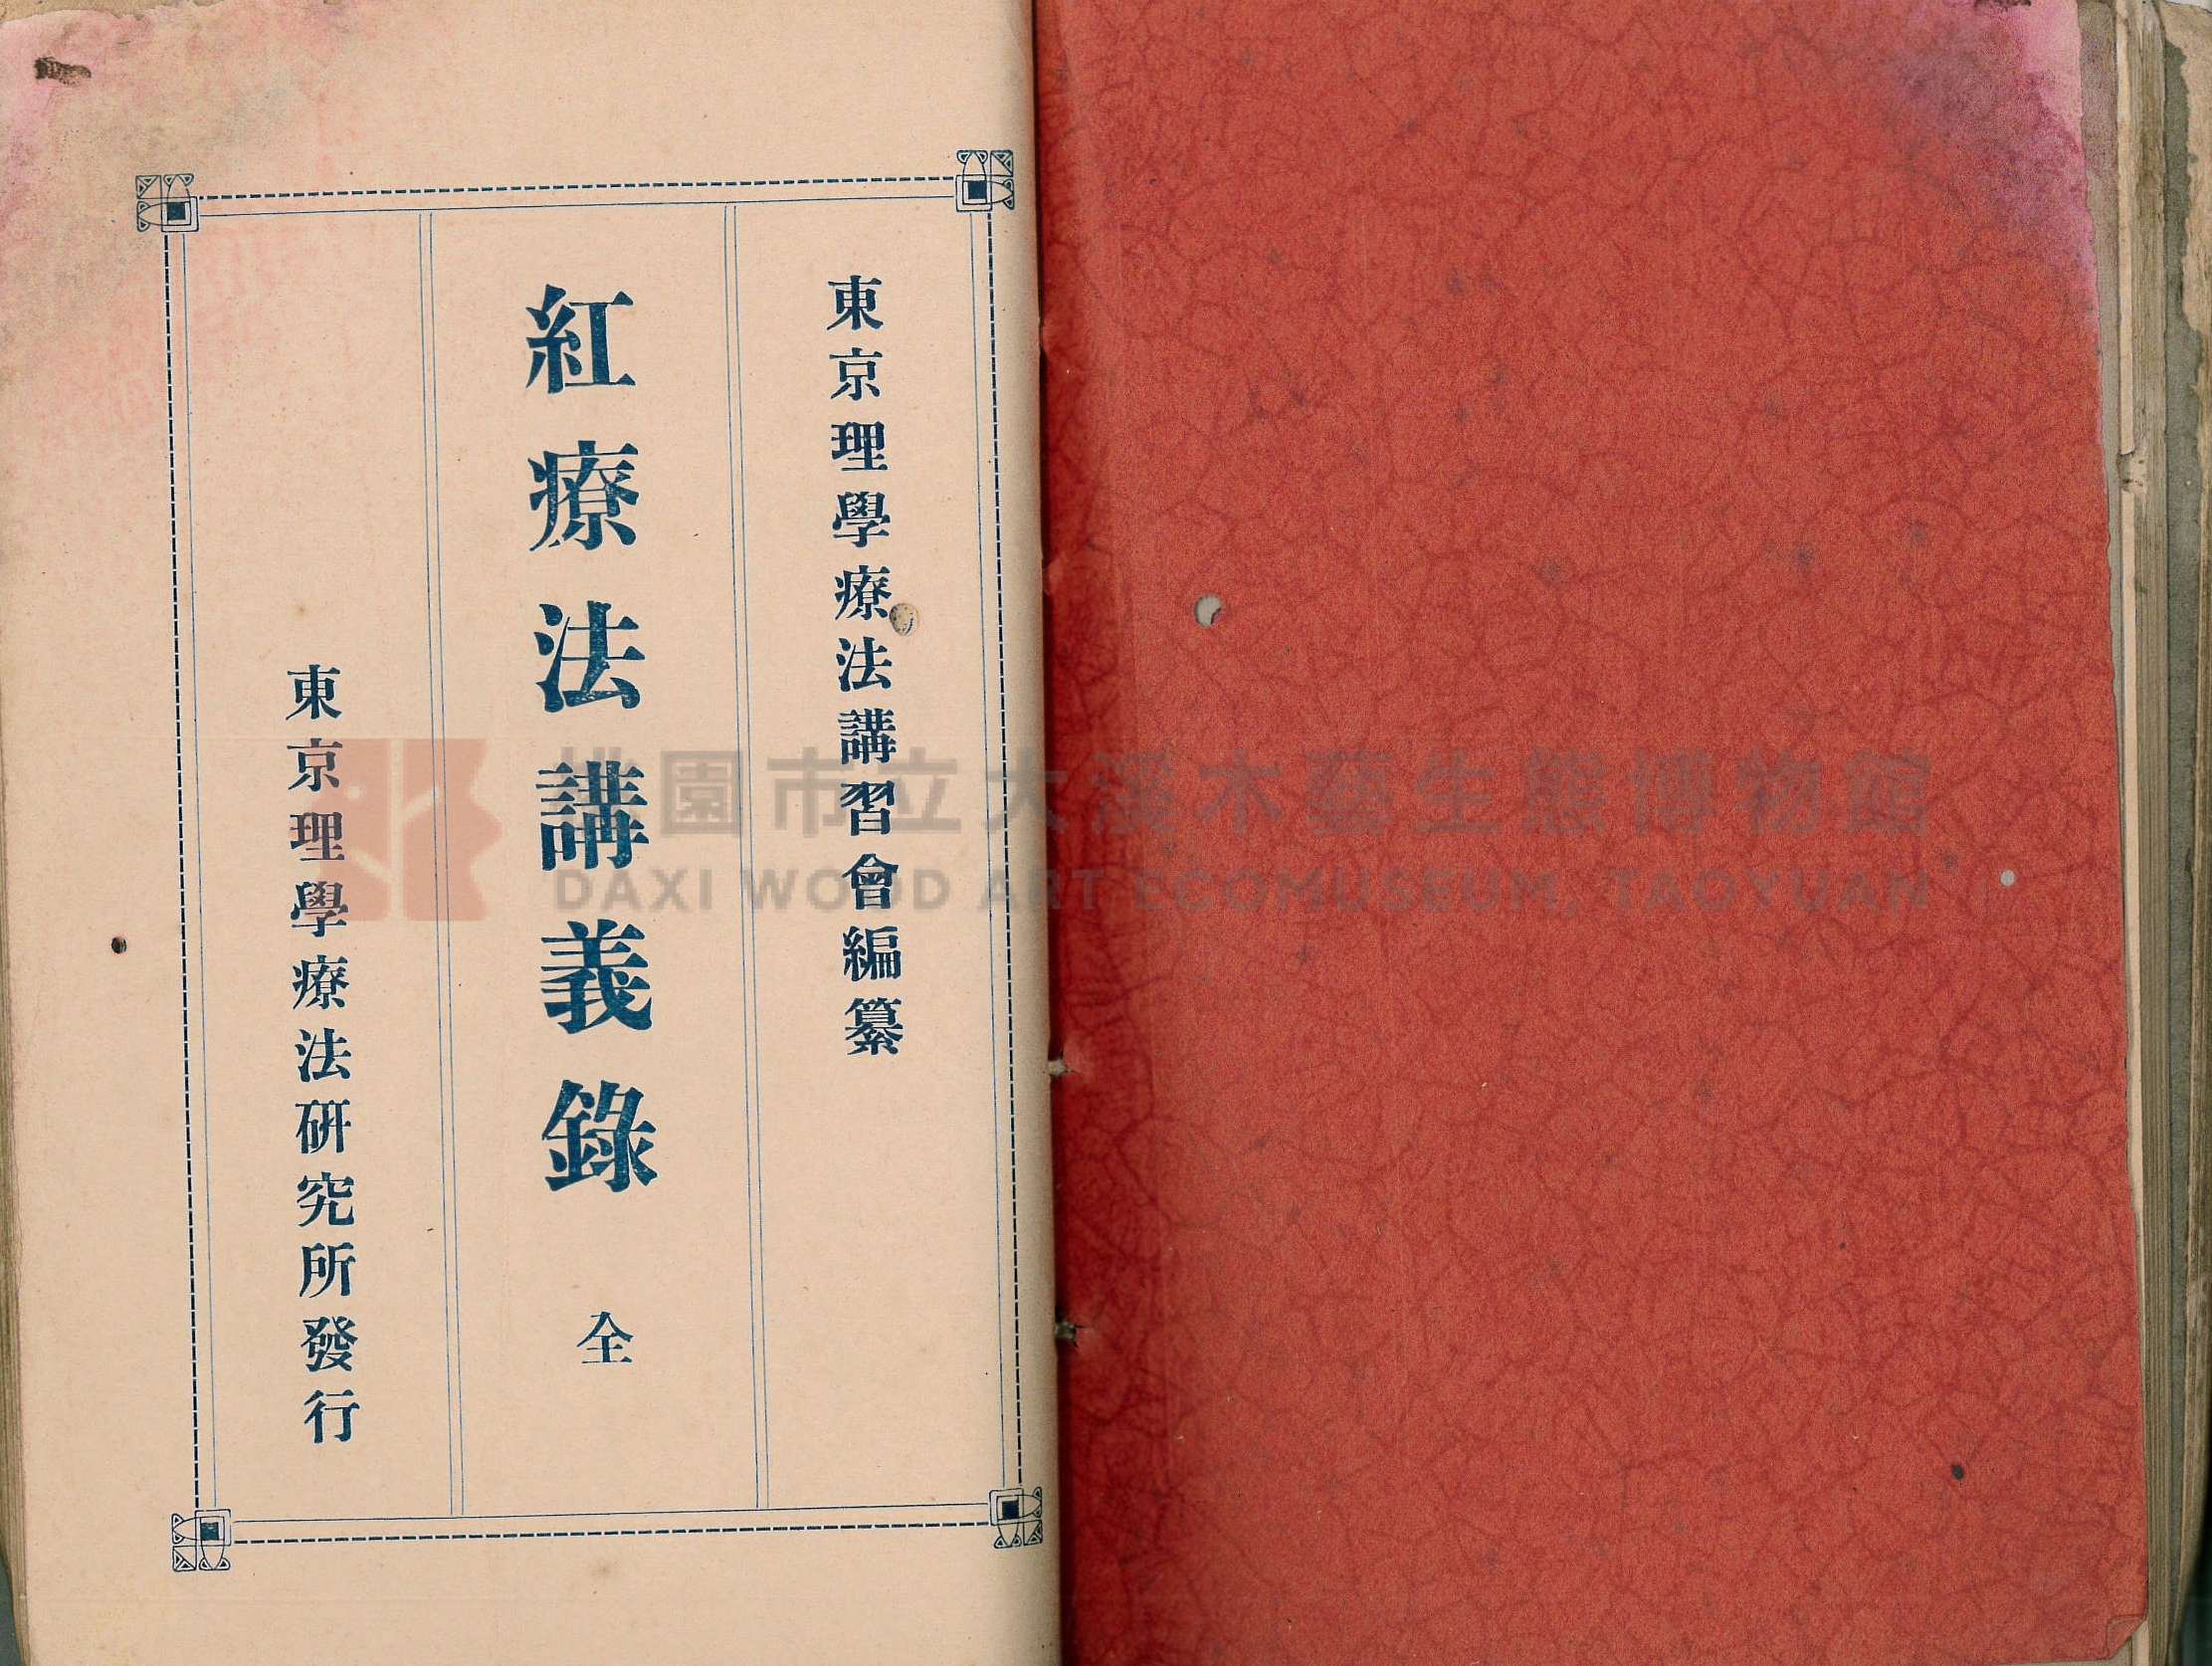 東京理學療法講習會編纂
紅療法講義錄 全
東京理學療法研究所發行
桃園市立大溪木藝生態博物館
DAXI WOOD ART ECOMUSEUM, TAOYUAN